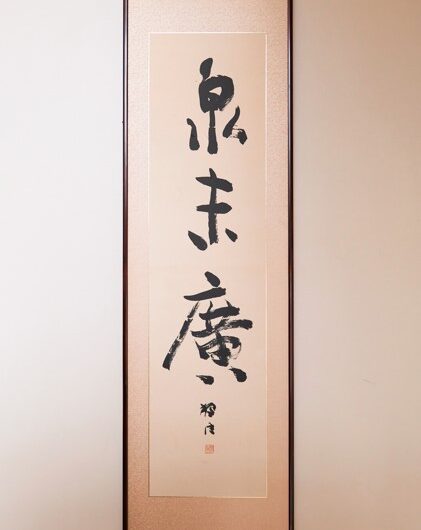 泉末廣